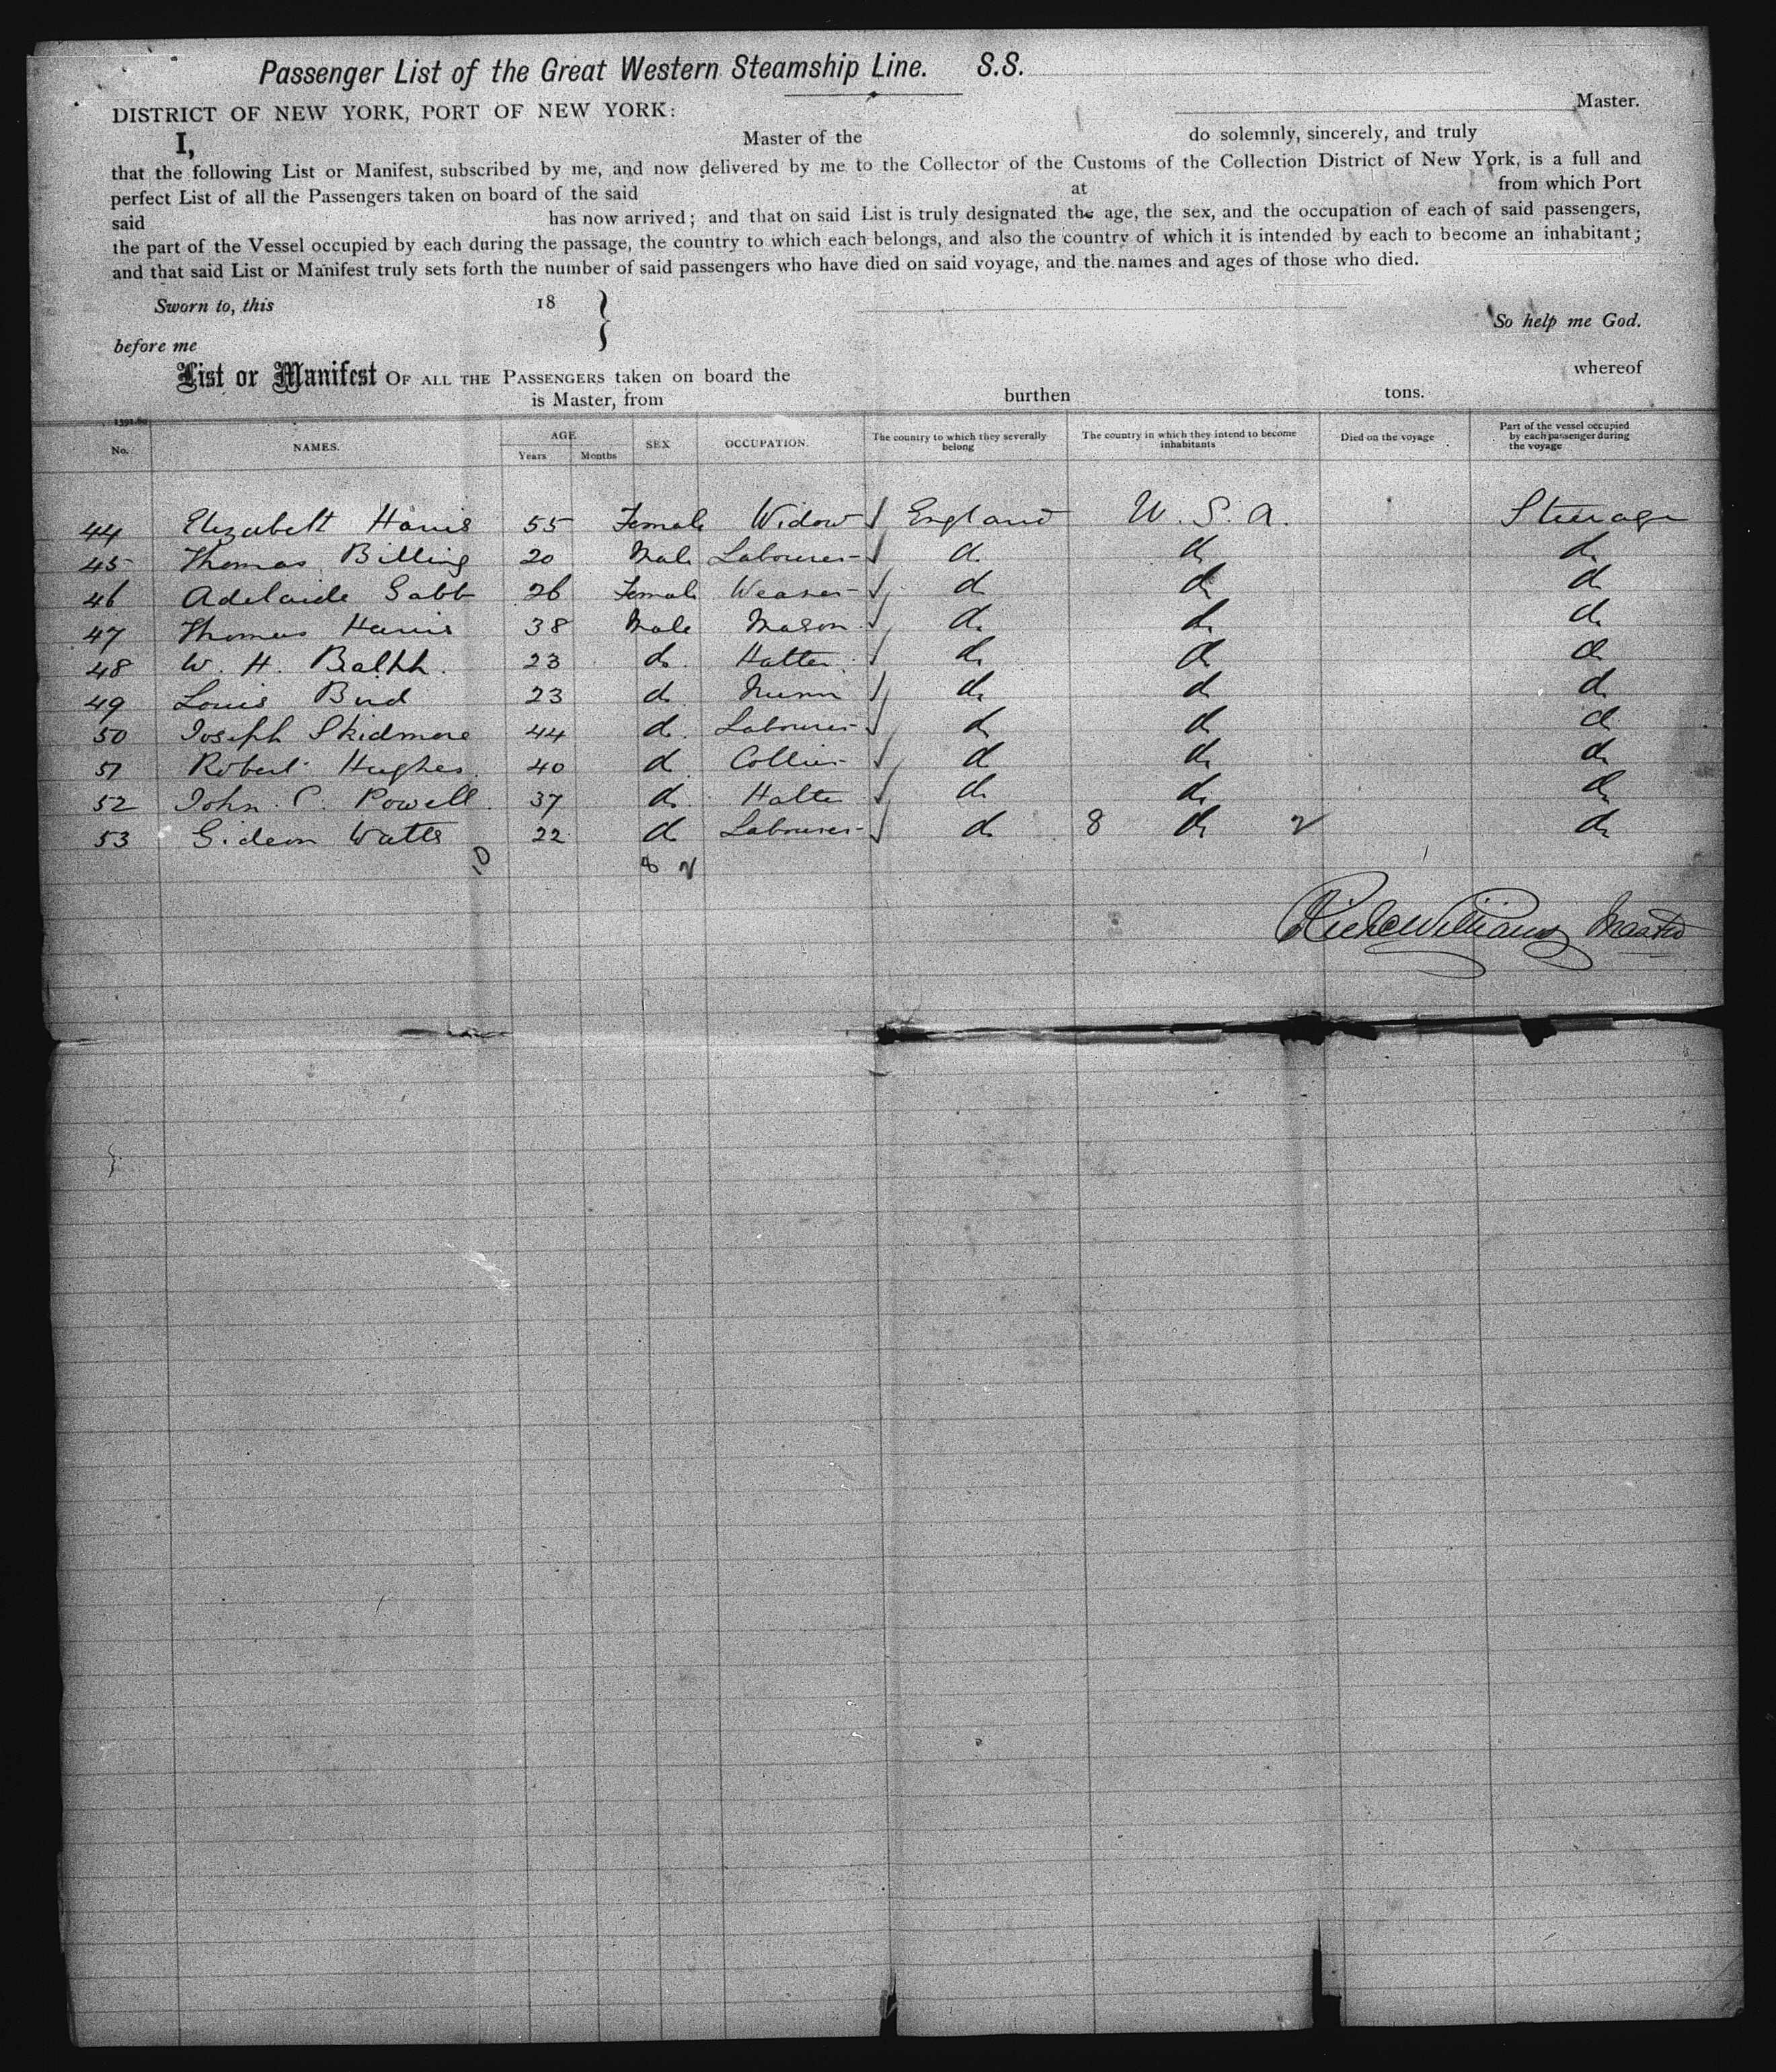 Passenger List of the Great Western Steamship Line. S.S.
Master.
DISTRICT OF NEW YORK, PORT OF NEW YORK:
I, Master of the do solemnly, sincerely, and truly
that the following List or Manifest, subscribed by me, and now delivered by me to the Collector of the Customs of the Collection District of New York, is a full and
perfect List of all the Passengers taken on board of the said at from which Port
said has now arrived; and that on said List is truly designated the age, the sex, and the occupation of each of said passengers,
the part of the Vessel occupied by each during the passage, the country to which each belongs, and also the country of which it is intended by each to become an inhabitant;
and that said List or Manifest truly sets forth the number of said passengers who have died on said voyage, and the names and ages of those who died.
Sworn to, this 18
So help me God.
before me
List or Manifest OF ALL THE PASSENGERS taken on board the whereof
is Master, from burthen tons.
No. NAMES. AGE Years Months SEX OCCUPATION. The country to which they severally belong The country in which they intend to become inhabitants Died on the voyage Part of the vessel occupied by each passenger during the voyage
44 Elizabeth Harris 55 Female Widow England U.S.A. Steerage
45 Thomas Billing 20 Male Labourer do do do
46 Adelaide Gabb 26 Female Weaver do do do
47 Thomas Harris 38 Male Mason do do do
48 W. H. 23 do Hatter do do do
49 Louis Bird 23 do do do do
50 Joseph Skidmore 44 do Labourer do do do
51 Robert Hughes 40 do Collier do do do
52 John C. Powell 37 do Hatter do do do
53 Gideon Watts 22 do Labourer do 8 do 2 do
10 8 2
Richd Williams Master